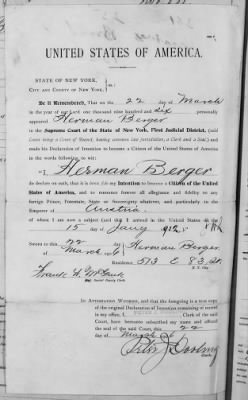 UNITED STATES OF AMERICA.
STATE OF NEW YORK,
CITY AND COUNTY OF NEW YORK.
Be it Remembered, That on the 22 day of March
in the year of our Lord one thousand nine hundred and six personally
appeared Herman Berger
in the Supreme Court of the State of New York, First Judicial District, (said
Court being a Court of Record, having common law jurisdiction, a Clerk and a Seal,) and
made his Declaration of Intention to become a Citizen of the United States of America
in the words following, to wit:
"I, Herman Berger
do declare on oath, that it is bona fide my Intention to become a Citizen of the United
States of America, and to renounce forever all allegiance and fidelity to any
foreign Prince, Potentate, State or Sovereignty whatever, and particularly to the
Emperor of Austria
of whom I am now a subject
15 day
Sworn this 22
day of March Herman Berger.
Residence 513 E 83 St.
N. Y. City
Special Deputy Clerk.
IN ATTESTATION WHEREOF, and that the foregoing is a true copy
of the original Declaration of Intention remaining of record
in my office, I Clerk of the
said Court, have hereunto subscribed my name and affixed
the seal of the said Court, this 22
day of March
Clerk.